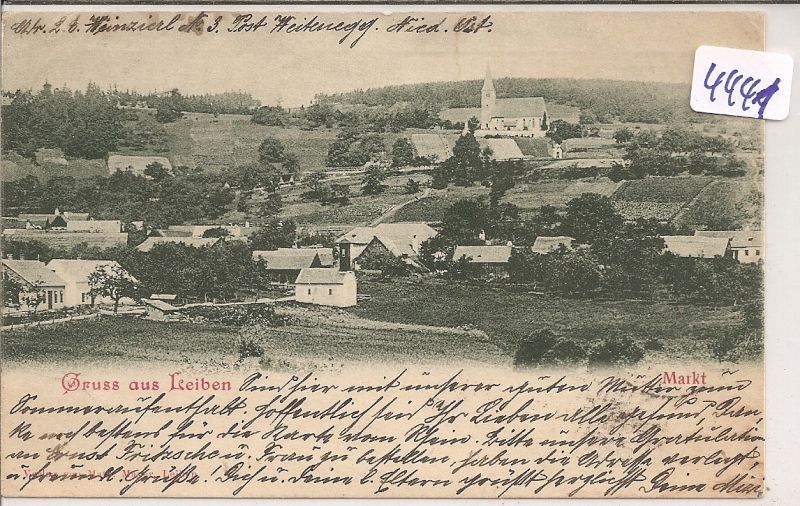 Adr. z. Z. Weinzierl No 3. Post Weitenegg. Nied. Öst.
4441
Gruss aus Leiben
Markt
Sind hier mit unserer guten Mutter zum
Sommeraufenthalt. Hoffentlich seid Ihr Lieben alle gesund, Dan-
ke noch bestens für die Karte vom Rhein. Bitte unsere Gratulation
an Ernst Fritzsche u. Frau zu bestellen haben die Adresse verlegt,
u. freundl. Grüße! Dich u. deine l. Eltern grüßt herzlichst Deine Mizi